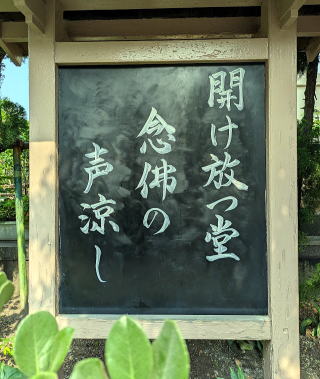 開け放つ堂
念佛の
声涼し